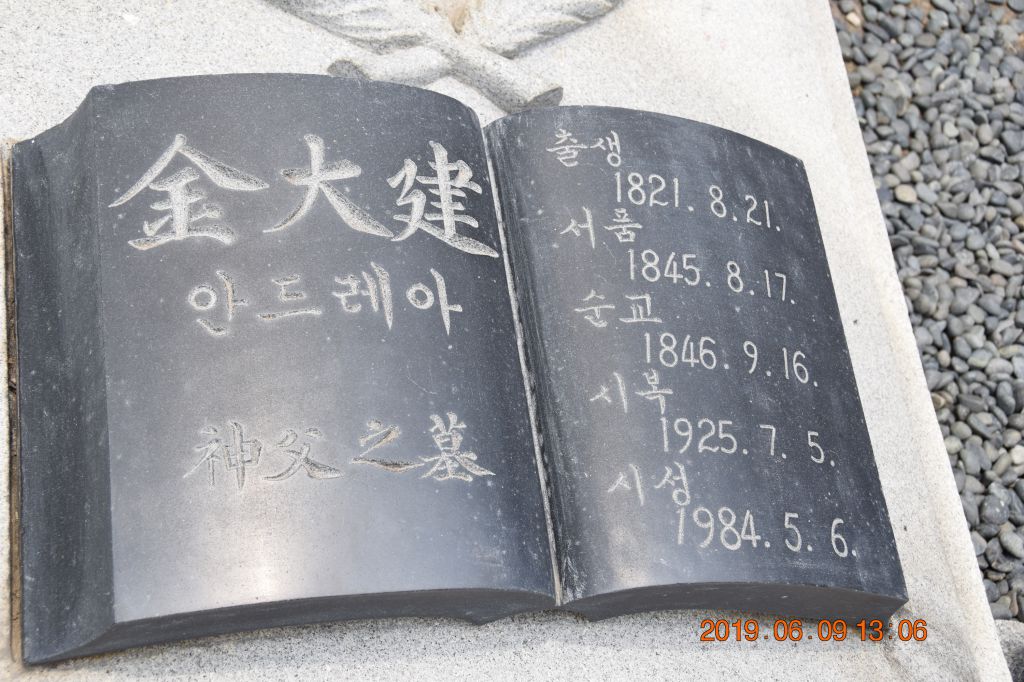 金大建
안드레아
神父之墓
출생
1821. 8. 21.
서품
1845. 8. 17.
순교
1846. 9. 16.
시복
1925. 7. 5.
시성
1984. 5. 6.
2019.06.09 13:06